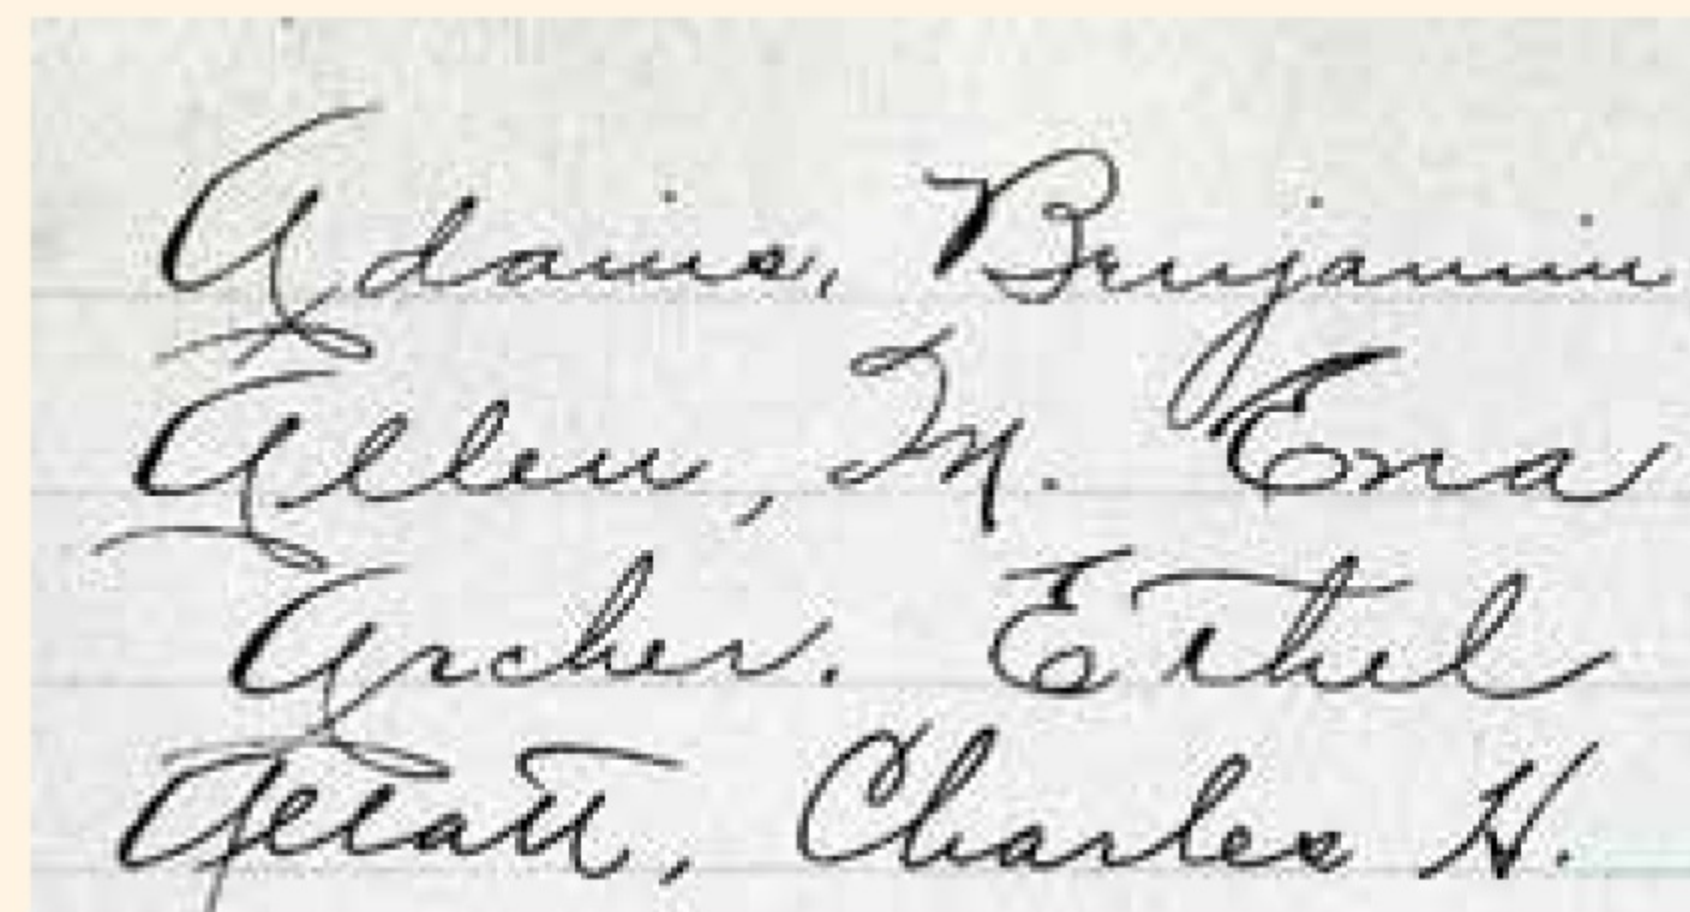 Adams, Benjamin
Allen, M. Ena
Archer. Ethel
Charles H.